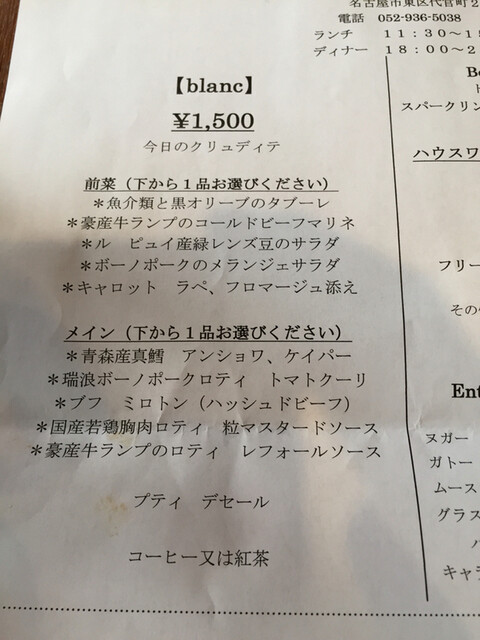 名古屋市東区代官町2
電話 052-936-5038
ランチ 11:30~1
ディナー 18:00~2
【blanc】
¥1,500
今日のクリュディテ
前菜(下から1品お選びください)
*魚介類と黒オリーブのタブーレ
*豪産牛ランプのコールドビーフマリネ
*ル ピュイ産緑レンズ豆のサラダ
*ボーノポークのメランジェサラダ
*キャロット ラペ、フロマージュ添え
メイン(下から1品お選びください)
*青森産真鱈 アンショワ、ケイパー
*瑞浪ボーノポークロティ トマトクーリ
*ブフ ミロトン(ハッシュドビーフ)
*国産若鶏胸肉ロティ 粒マスタードソース
*豪産牛ランプのロティ レフォールソース
プティ デセール
コーヒー又は紅茶
スパークリン
ハウスワ
フリー
その
Ent
ヌガー
ガトー
ムース
グラス
キャラ